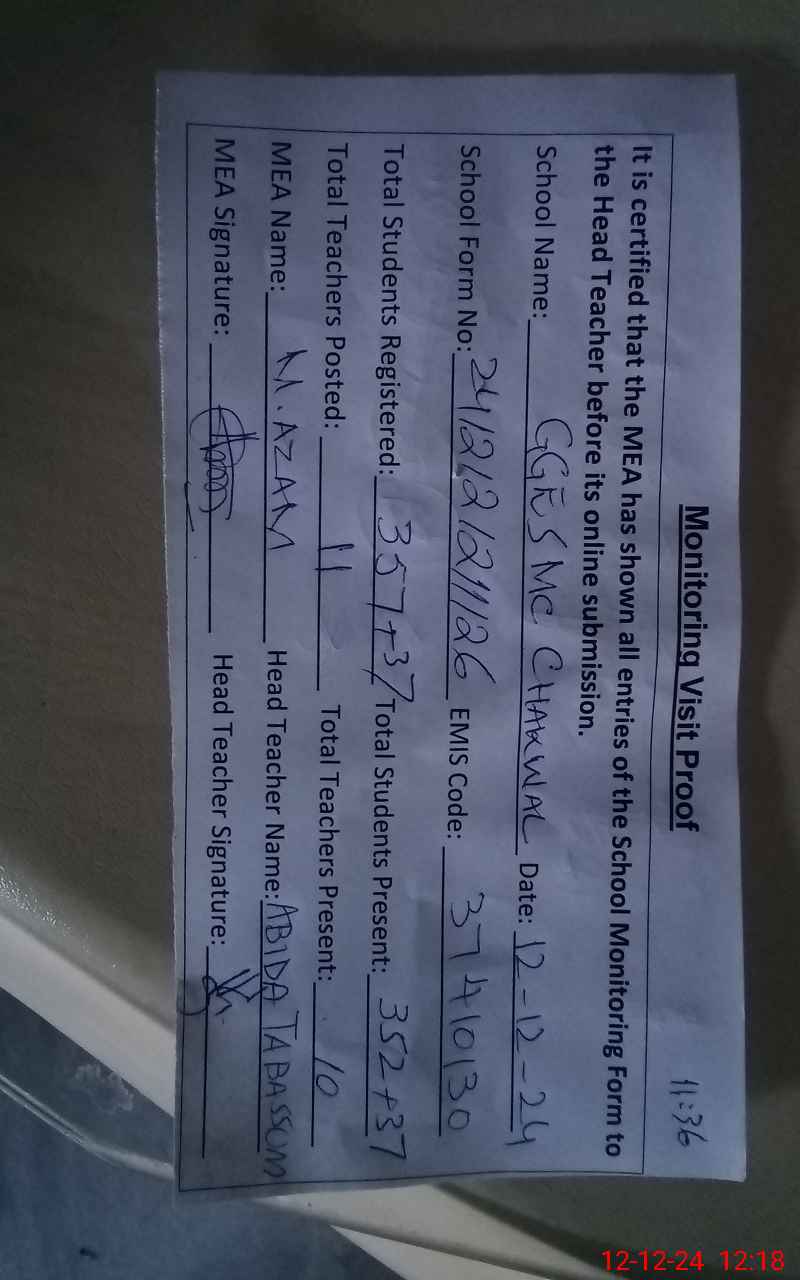 11:36
Monitoring Visit Proof
It is certified that the MEA has shown all entries of the School Monitoring Form to
the Head Teacher before its online submission.
School Name: GGES MC CHAKWAL Date: 12-12-24
School Form No: 2412121211126 EMIS Code: 37410130
Total Students Registered: 357+37 Total Students Present: 352+37
Total Teachers Posted: 11 Total Teachers Present: 10
MEA Name: M. AZAM Head Teacher Name: ABIDA TABASSUM
MEA Signature: Head Teacher Signature:
12-12-24 12:18